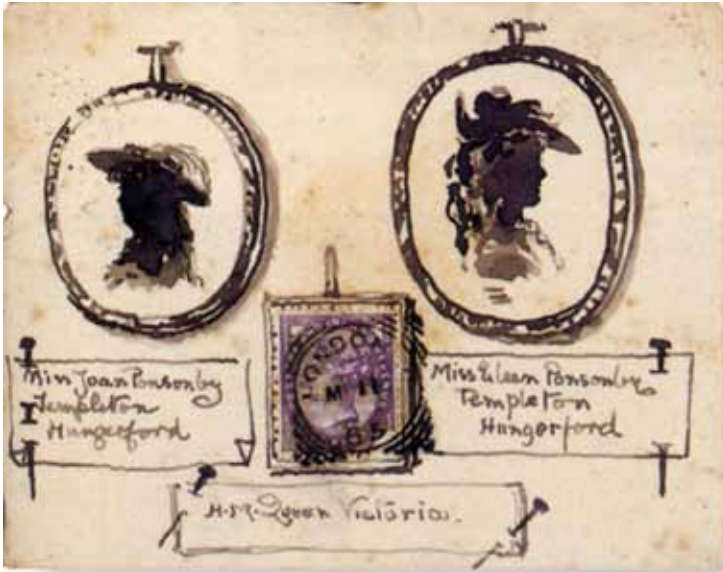 Miss Joan Ponsonby
Templeton
Hungerford
LONDON
M 11
85
Miss Eileen Ponsonby
Templeton
Hungerford
H.M. Queen Victoria.